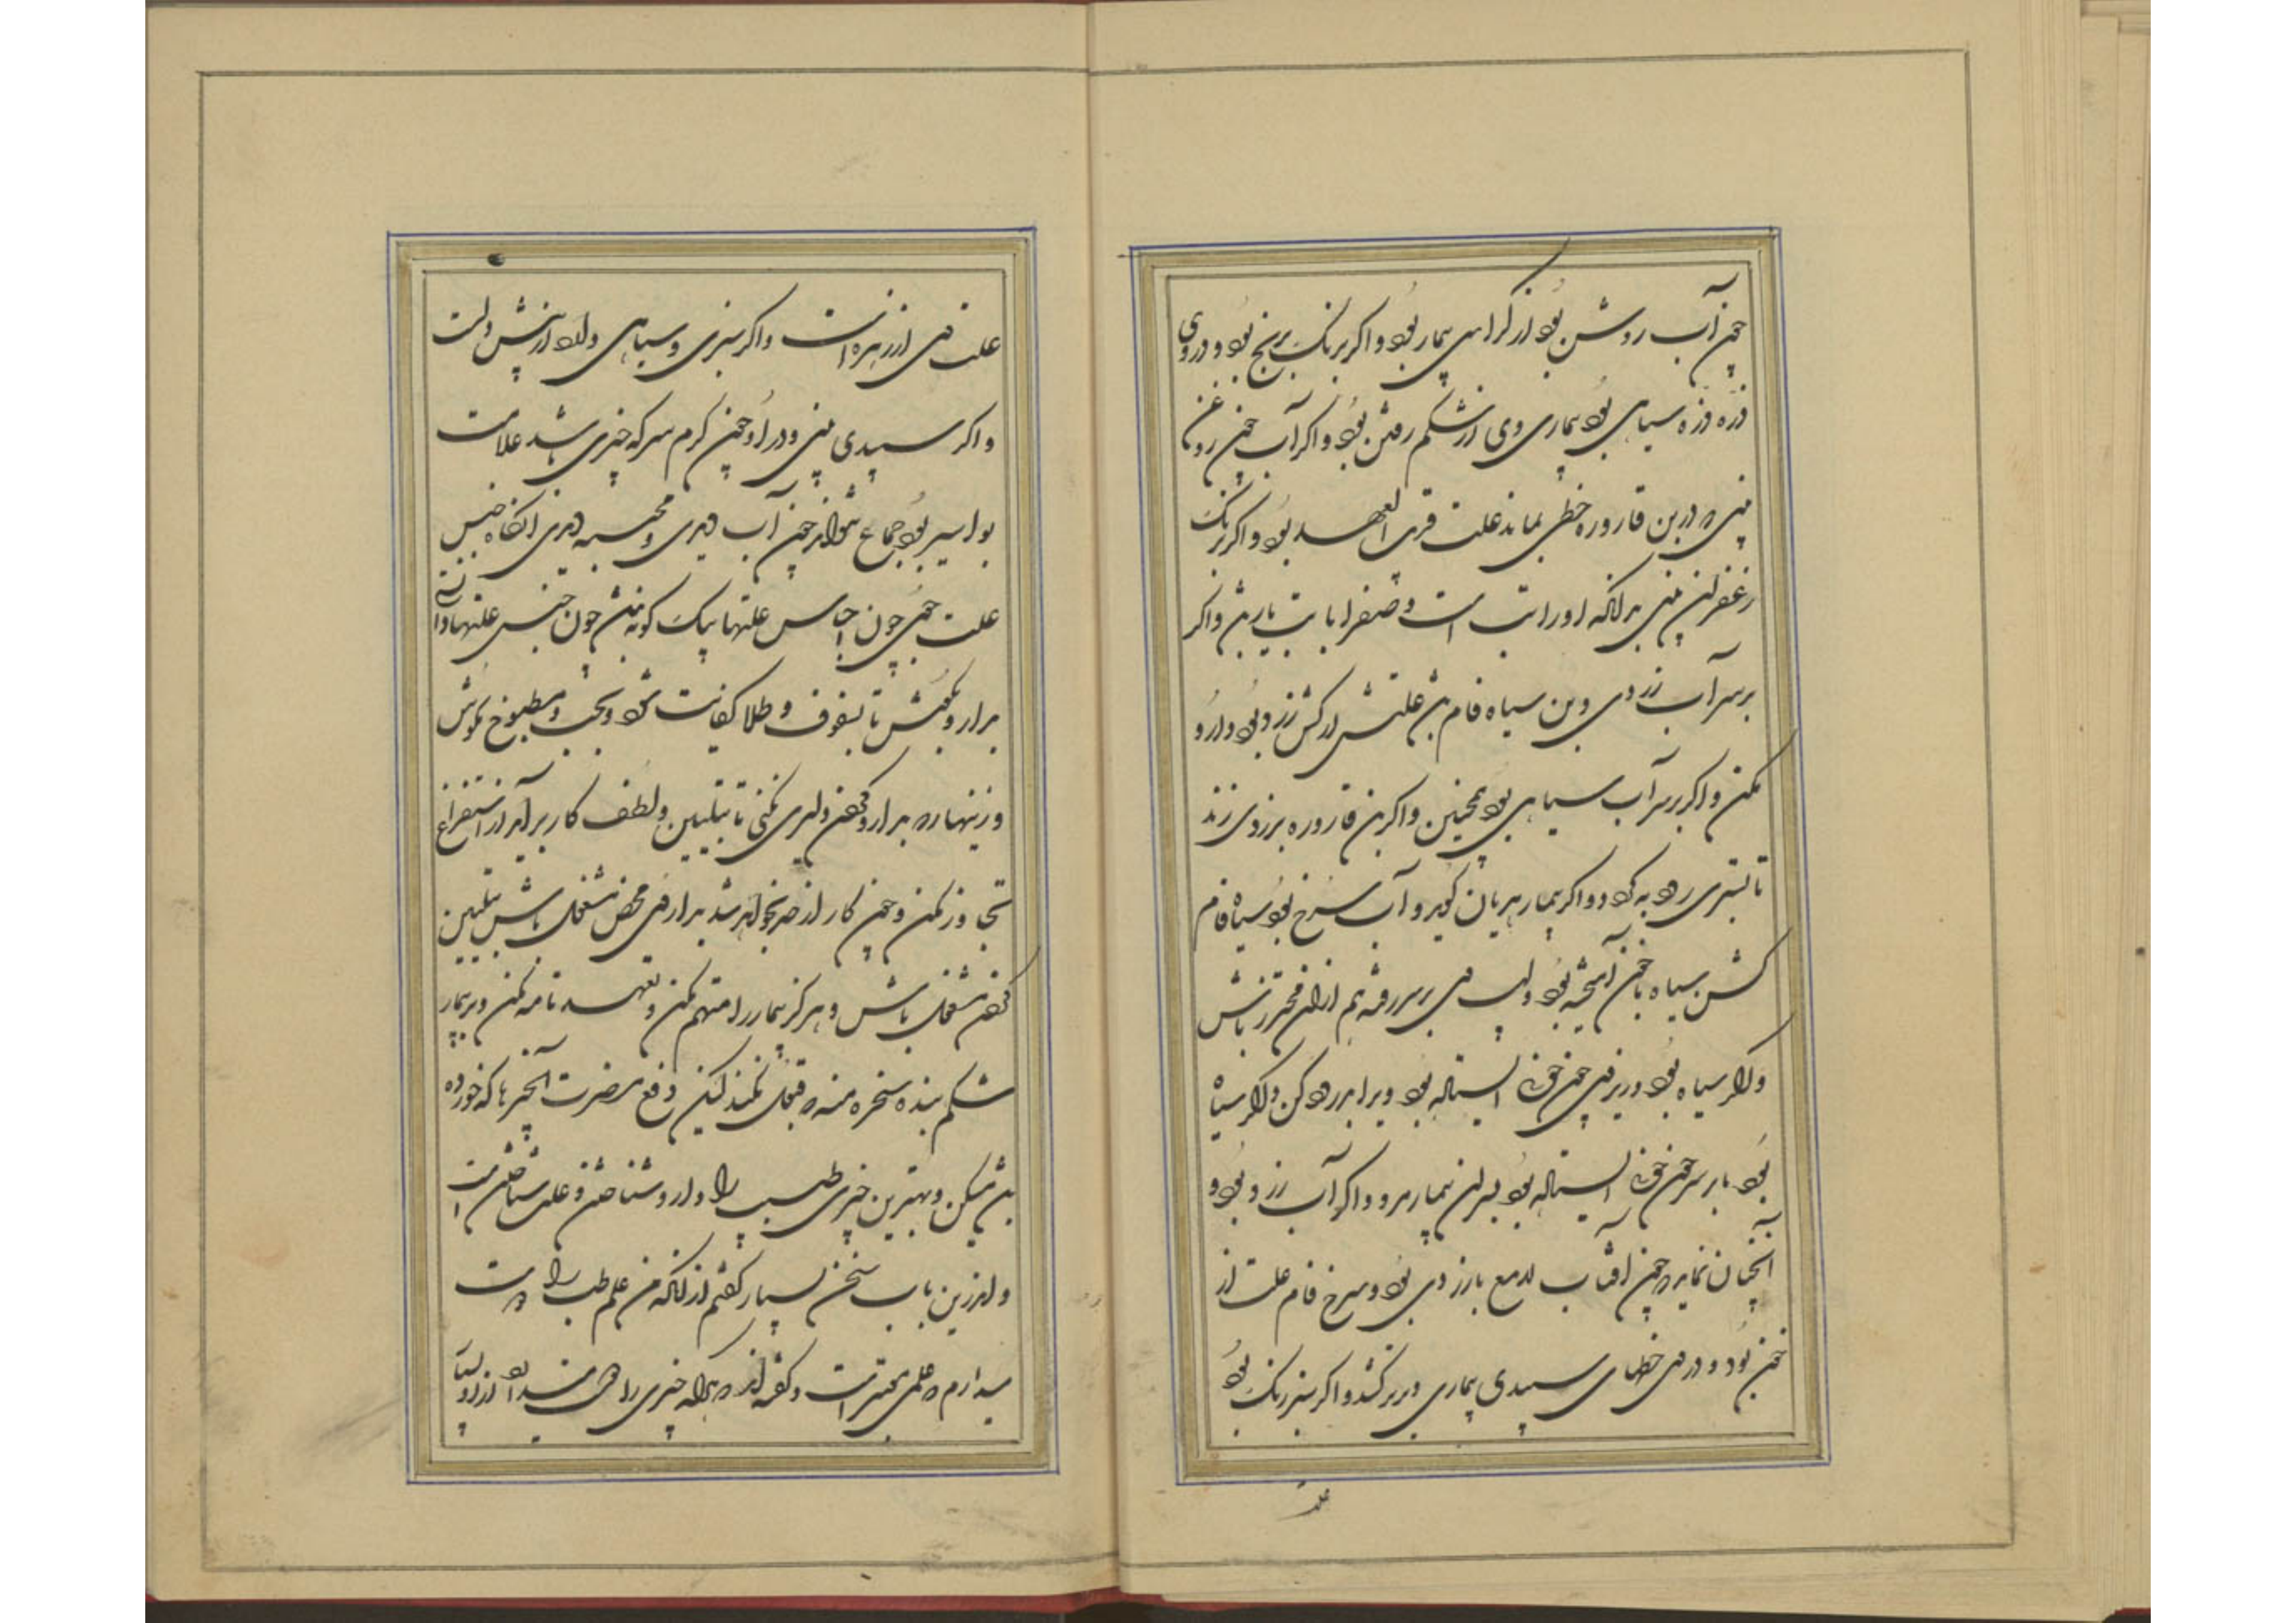 چون آب روشن بود از کراهی بیمار بود و اگر برنک برنج بود و در وی
ذره ذره سیاهی بود بیماری وی از شکم رفتن بود و اگر آب چون روغن
بینی و در بن قاروره خطی نماید علت قریب العهد بود و اگر برنک
زعفران بینی بدانکه او را تب است و صفرا با تب یار بود و اگر
بر سر آب زردی و بن سیاه فام بود علتش از کش زرد بود دارو
مکن و اگر بر سر آب سیاهی بود همچنین و اگر بن قاروره بزردی زند
تا بسبزی رود به کردد و اگر بیمار هذیان کوید و آب سرخ بود سیاه فام
کش سیاه با خون آمیخته بود و لهب وی بر سر رفته هم از آن محترز باش
و اگر سیاه بود و زبر وی چون خون ایستاده بود ویرا بدرود کن و اگر سیاه
بود با بر سر چون خون ایستاده بود بر آن بیمار مرو و اگر آب زرد بود و
آنچنان نماید چون آفتاب لامع با زردی بود و سرخ فام علت از
خون بود و در وی خطهای سپیدی بیماری دیرتر کشد و اگر سبز رنک بود
علت
علت وی از زهره است و اگر سبزی و سیاهی دارد از تپش دلست
و اگر سپیدی بینی و در او چون کرم سرکه چیزی باشد علامت
بواسیر بود جماع نتواند چون آب دیدی و مجسه دیدی آنکاه جنس
علت جوی چون اجناس علتها بیک کونه نباشد چون جنس علتها دانسته
بدارو مکوش تا بسفوف و طلا کفایت شود و بحب و مطبوخ مکوش
و زینهار بدارو کردن دلیری مکنی تا بتلیین و لطف کار برآید از استفراغ
تجاوز مکن و چون کار از حد بخواهد شد بداروی محض مشغول باش بتلیین
کردن مشغول باش و هرکز بیمار را متهم مکن و تعهد نامه مکن و بر بیمار
شکم بنده سخره منه و قبول نکند لیکن دفع مضرت آن چیزها که خورده
باشد میکن و بهترین چیزی طبیب را دارو شناختن و علت شناختن است
و اندرین باب سخن بسیار کفتم از آنکه من علم طب را دوست
میدارم که علمی مجتبر است و کفته اند هرکه چیزی را دوست دارد از او بسیار